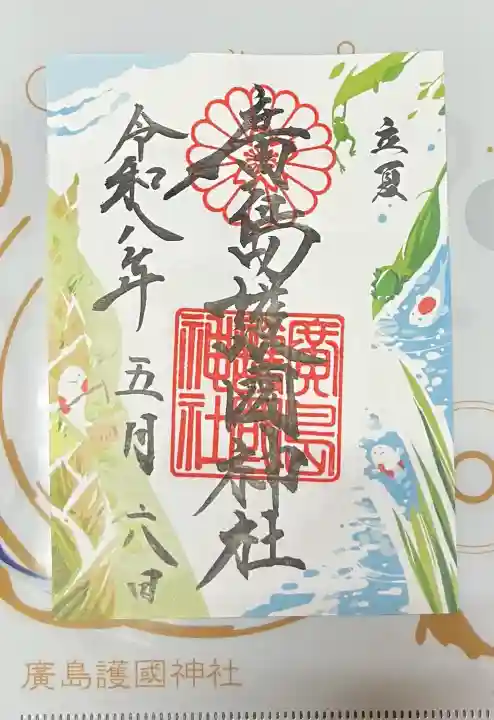 立夏
廣島護國神社
令和八年 五月 六日
廣島護國神社
廣島護國神社